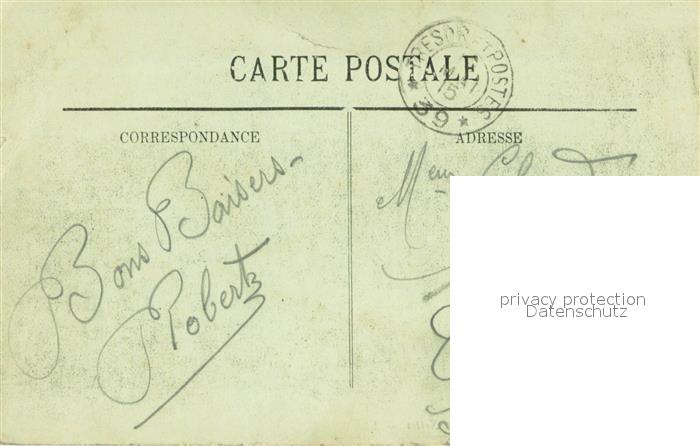 CARTE POSTALE
TRESOR ET POSTES
15
* 39 *
CORRESPONDANCE
ADRESSE
Bons Baisers -
Robert
Mme
privacy protection
Datenschutz